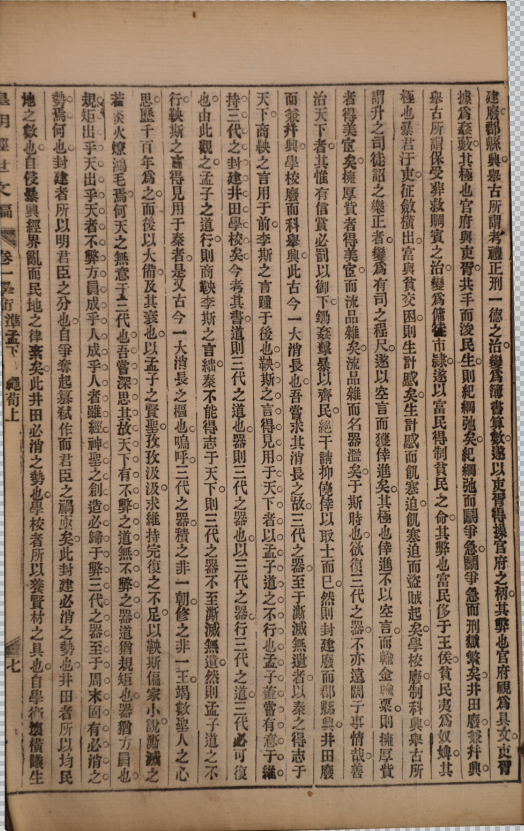 建廢郡縣興舉古所謂考禮正刑一德之治變爲簿書算數遂以吏胥得操官府之柄其弊也官府視爲具文吏胥
據爲姦藪其極也官府與吏胥共手而浚民生則紀綱弛矣紀綱弛而鬭爭急鬭爭急而刑獄繁矣井田廢兼并興
舉古所謂保受葬救賙賓之治變爲傭 市隸遂以富民得制貧民之命其弊也富民侈于王侯貧民夷爲奴婢其
極也暴君汙吏征斂橫出富與貧交困則生計慼矣生計慼而飢寒迫飢寒迫而盜賊起矣學校廢制科興舉古所
謂升之司徒詔之樂正者變爲有司之程尺遂以空言而獲倖進矣其極也倖進不以空言而 金 粟則擁厚貲
者得美宦矣擁厚貲者得美宦而流品雜矣流品雜而名器濫矣于斯時也欲復三代之器不亦遠闊于事情哉善
治天下者其惟有信賞必罰以御下鋤姦擊暴以齊民絕干請抑僥倖以取士而已然則封建廢而郡縣興井田廢
而兼并興學校廢而科舉興此古今一大消長也吾嘗求其消長之故三代之器至于澌滅無遺者以秦之得志于
天下商鞅之言用于前李斯之言踵于後也鞅斯之言得見用于天下者以孟子道之不行也孟子蓋嘗有意于維
持三代之封建井田學校矣今考其書道則三代之道也器則三代之器也以三代之器行三代之道三代必可復
也由此觀之孟子之道行則商鞅李斯之言絀秦不能得志于天下則三代之器不至澌滅無遺然則孟子道之不
行鞅斯之言得見用于秦者是又古今一大消長之樞也嗚呼三代之器積之非一朝修之非一王竭數聖人之心
思歷千百年爲之而後以大備及其衰也以孟子之賢聖孜孜汲汲求維持完復之不足以鞅斯傴家小說澌滅之
若 火燎鴻毛焉何天之無意于三代也吾嘗深思其故天下有不弊之道無不弊之器道猶規矩也器猶方員也
規矩出乎天出乎天者不弊方員成乎人成乎人者雖經神聖之創造必歸于弊三代之器至于周末固有必消之
勢焉何也封建者所以明君臣之分也自爭奪起篡弒作而君臣之禍亟矣此封建必消之勢也井田者所以均民
地之數也自侵暴興經界亂而民地之律紊矣此井田必消之勢也學校者所以養賢材之具也自學術壞橫議生
皇明經世文編 卷一 準孟下 繩荀上 七